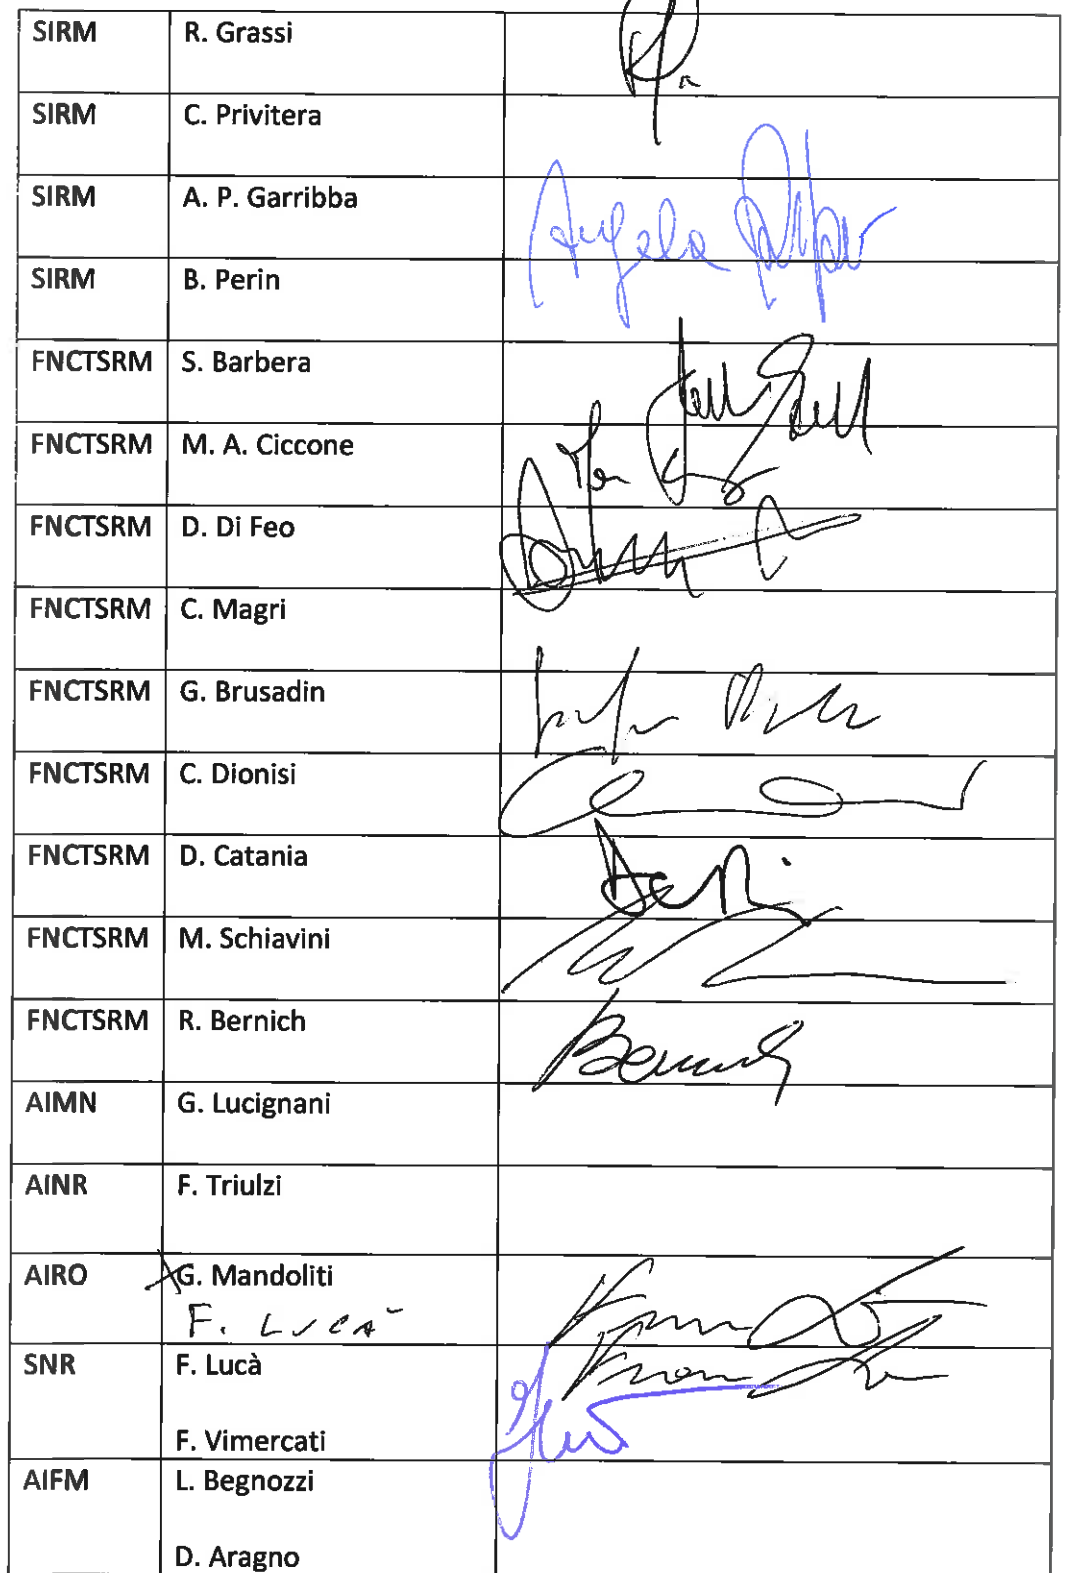 SIRM R. Grassi
SIRM C. Privitera
SIRM A. P. Garribba
Angela
SIRM B. Perin
FNCTSRM S. Barbera
FNCTSRM M. A. Ciccone
FNCTSRM D. Di Feo
FNCTSRM C. Magri
FNCTSRM G. Brusadin
FNCTSRM C. Dionisi
FNCTSRM D. Catania
FNCTSRM M. Schiavini
FNCTSRM R. Bernich
AIMN G. Lucignani
AINR F. Triulzi
AIRO G. Mandoliti
F. LUCA`
SNR F. Lucà
F. Vimercati
AIFM L. Begnozzi
D. Aragno